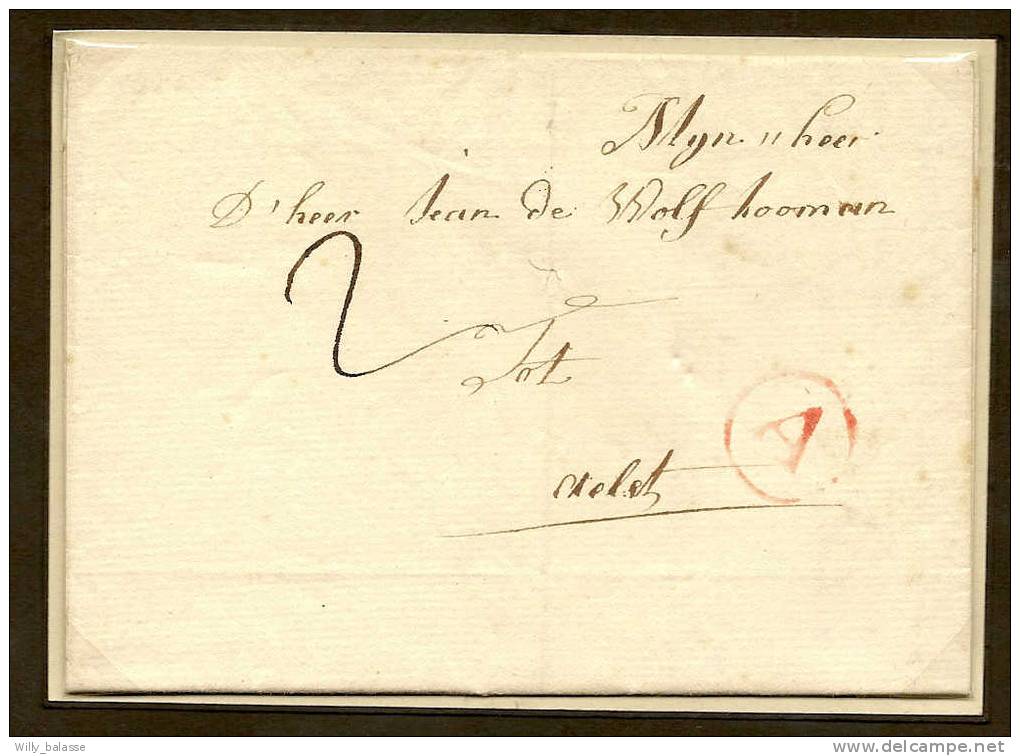 Mijn heer
D'heer Jean de Wolf
2
Tot
Aelst
A
Willy_balasse
delcampe.net